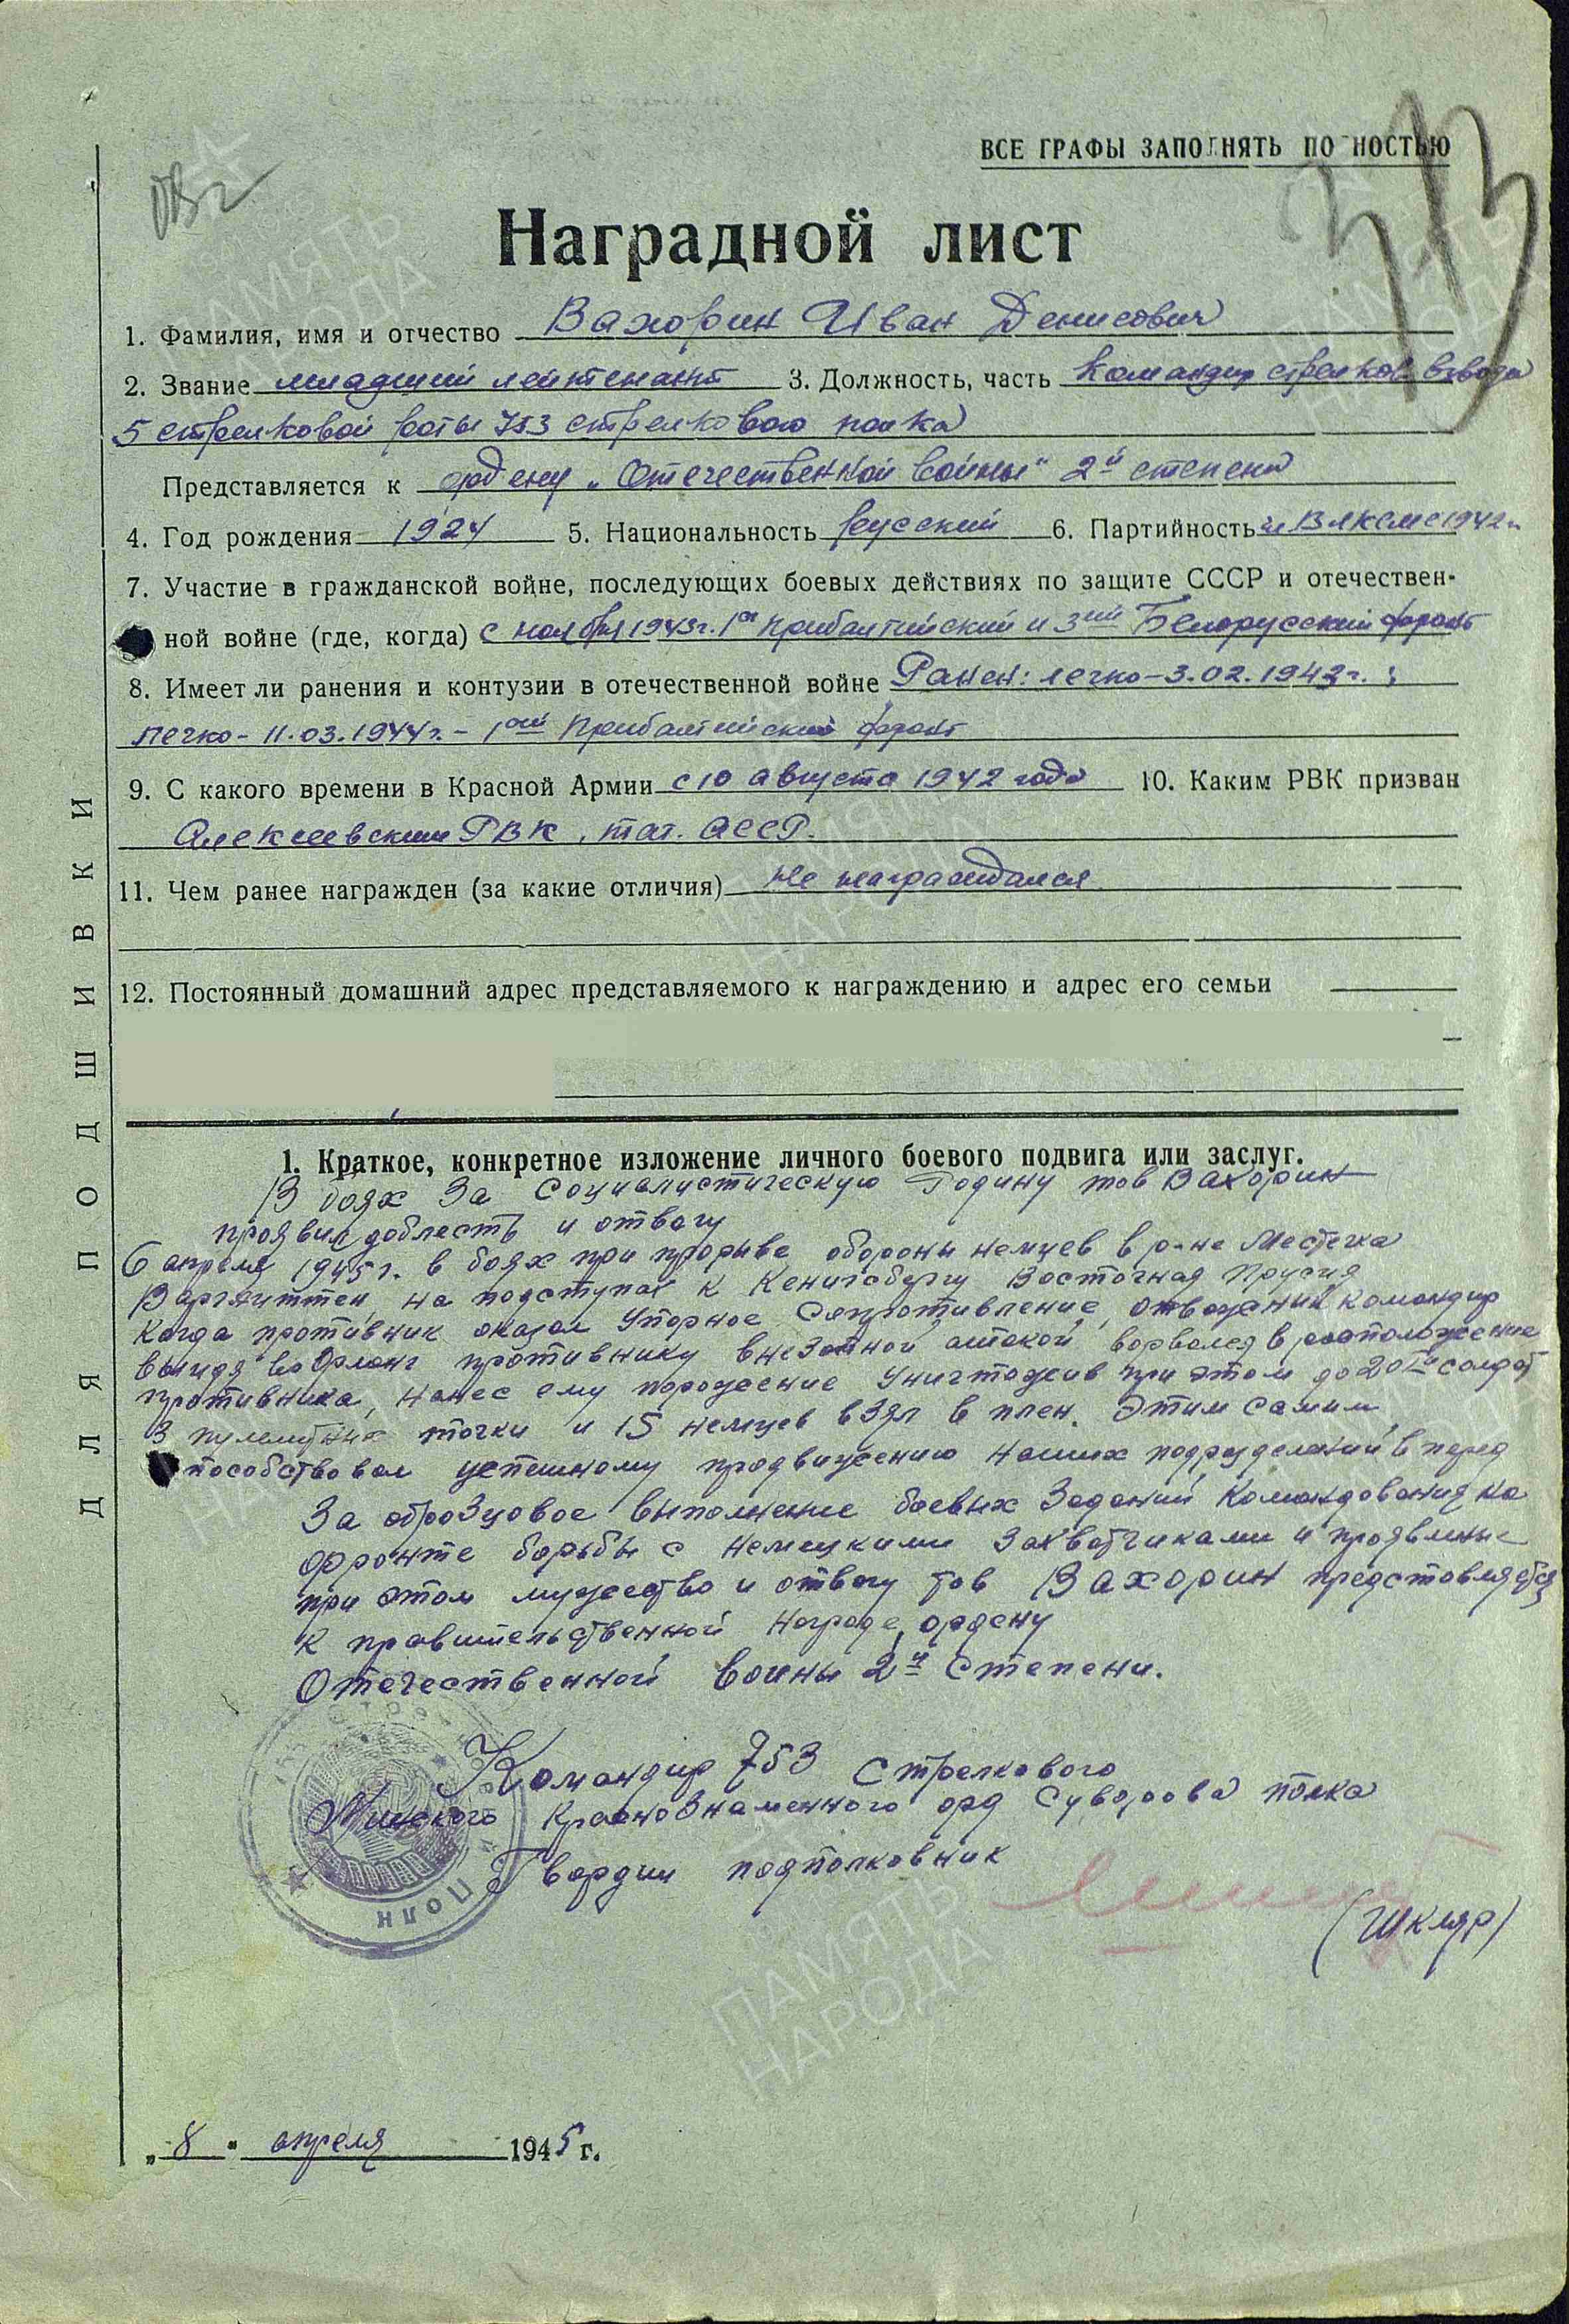 ВСЕ ГРАФЫ ЗАПОЛНЯТЬ ПОЛНОСТЬЮ
ОВ2
313
Наградной лист
1. Фамилия, имя и отчество Вахорин Иван Денисович
2. Звание младший лейтенант 3. Должность, часть Командир стрелков. взвода
5 стрелковой роты 753 стрелкового полка
Представляется к ордену „Отечественной войны" 2й степени
4. Год рождения 1924 5. Национальность русский 6. Партийность чл ВЛКСМ с 1942 г.
7. Участие в гражданской войне, последующих боевых действиях по защите СССР и отечествен-
ной войне (где, когда) с ноября 1943г. 1ый Прибалтийский и 3ий Белорусский фронт
8. Имеет ли ранения и контузии в отечественной войне Ранен: легко - 3.02.1943г.;
легко - 11.03.1944г. - 1ый Прибалтийский фронт
9. С какого времени в Красной Армии с 10 августа 1942 года 10. Каким РВК призван
Алексеевским РВК, тат. АССР.
11. Чем ранее награжден (за какие отличия) Не награждался
12. Постоянный домашний адрес представляемого к награждению и адрес его семьи
ДЛЯ ПОДШИВКИ
1. Краткое, конкретное изложение личного боевого подвига или заслуг.
В боях за Социалистическую Родину тов Вахорин
проявил доблесть и отвагу
6 апреля 1945г. в боях при прорыве обороны немцев в р-не Местечка
Варгяиттен, на подступах к Кенигсбергу Восточная Прусия
Когда противник оказал упорное Сопротивление, отважный командир
выйдя во Фланг противнику внезапной атакой ворвался в расположение
противника, нанес ему поражение Уничтожив при этом до 20ти солдат
3 пулеметных точки и 15 немцев взял в плен. Этим самым
способствовал успешному продвижению наших подразделений вперед
За образцовое выполнение боевых Заданий Командования на
фронте борьбы с немецкими Захватчиками и проявленые
при этом мужество и отвагу тов Вахорин представляется
к правительственной Награде, ордену
Отечественной войны 2й Степени.
Командир 753 Стрелкового
Минского Краснознаменного орд Суворова полка
Гвардии подполковник
(Шкляр)
ПОЛК
„8" апреля 1945 г.
ПАМЯТЬ
НАРОДА